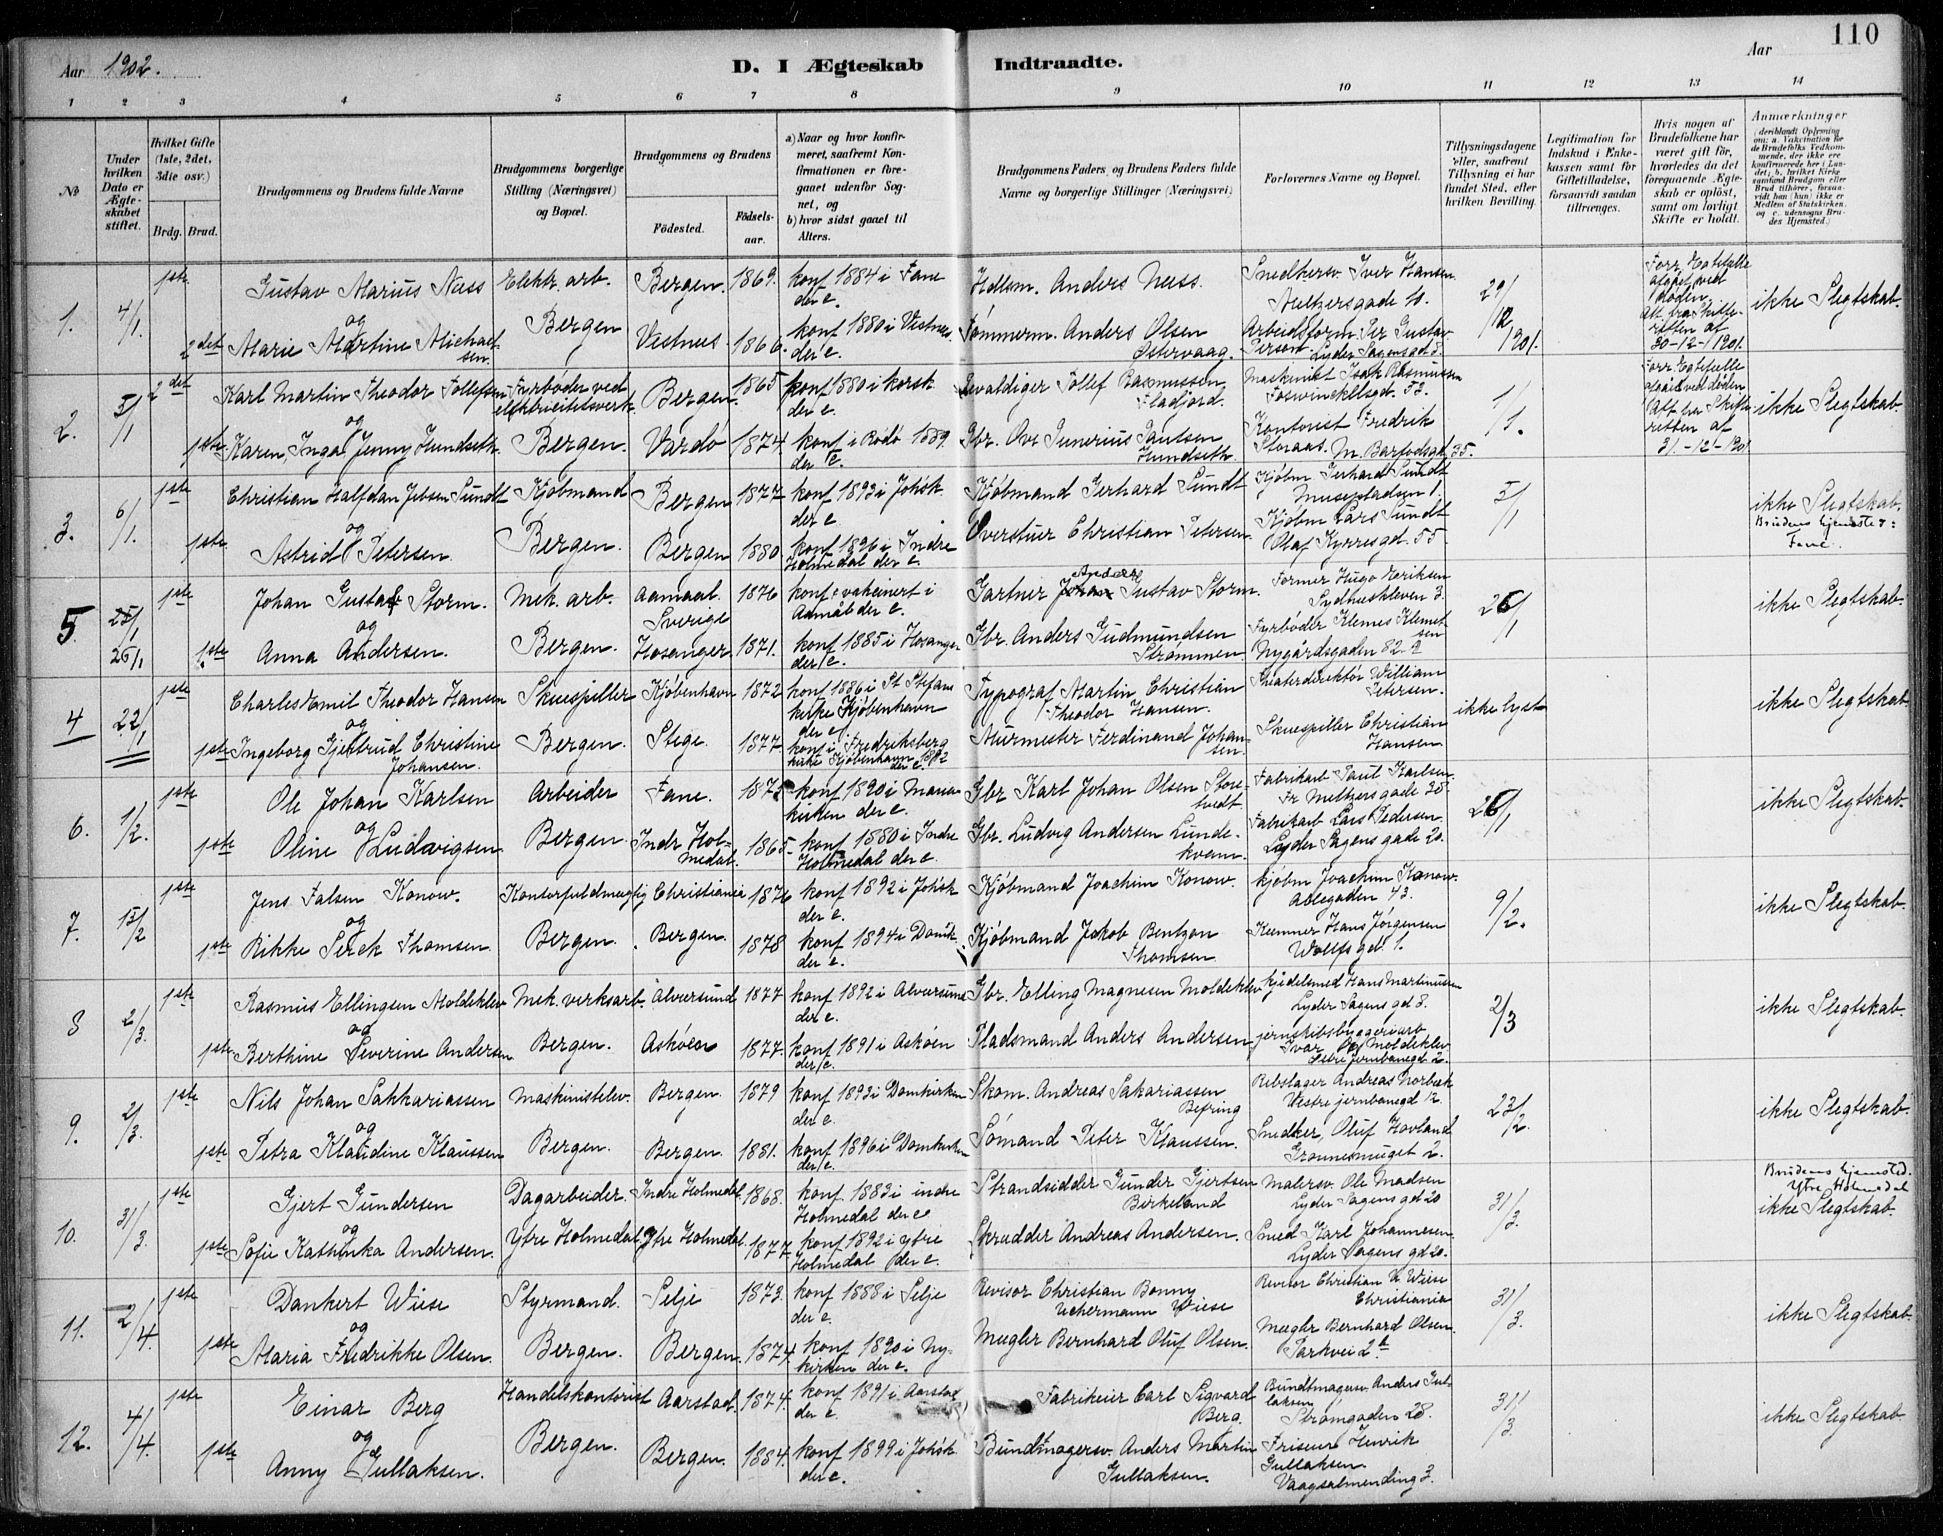 110
Aar 1902.
D. I Ægteskab Indtraadte.
Aar
1 2 3 4 5 6 7 8 9 10 11 12 13 14
No
Under hvilken Dato er Ægteskabet stiftet.
Hvilket Gifte (1ste, 2det, 3die osv.)
Brdg. Brud.
Brudgommens og Brudens fulde Navne
Brudgommens borgerlige Stilling (Næringsvei) og Bopæl.
Brudgommens og Brudens
Födested. Födselsaar.
a) Naar og hvor konfirmeret, saafremt Konfirmationen er foregaaet udenfor Sognet, og
b) hvor sidst gaaet til Alters.
Brudgommens Faders, og Brudens Faders fulde Navne og borgerlige Stillinger (Næringsvei)
Forlovernes Navne og Bopæl.
Tillysningsdagene eller, saafremt Tillysning ei har fundet Sted, efter hvilken Bevilling.
Legitimation for Indskud i Enkekassen samt for Giftetilladelse, forsaavidt saadan tiltrænges.
Hvis nogen af Brudefolkene har været gift før, hvorledes da det foregaaende Ægteskab er opløst, samt om lovligt Skifte er holdt.
Anmærkninger (deriblandt Oplysning om: a. Vakcination for de Brudefolks Vedkommende, der ikke ere konfirmerede her i Landet; b. hvilket Kirkesamfund Brudgom eller Brud tilhører, forsaavidt han (hun) ikke er Medlem af Statskirken, og c. udensogns Brudes Hjemsted.)
1. 4/1. 1ste Gustav Marius Næss Elektr. arb. Bergen. 1869. konf 1884 i Fane der e. Hdlsm. Anders Næss. Snedkersv. Iver Hansen Meltzersgade 10. 29/12 1901. Forr. Egtefælle afgået ved døden, Att. fra Skifteretten af 30-12-1901. ikke Slegtskab.
og
2det Marie Martine Michaelsen. Bergen Vestnes 1866. konf 1880 i Vestnes. der e. Tømmerm. Anders Olsen Østervaag. Arbeidsform. Per Gustav Person Lyder Sagensgd 8.
2. 5/1 2det Karl Martin Theodor Tollefsen Fyrbøder ved elektricitetsverk Bergen. 1865 konf 1880 i korsk der e. Gevaldiger Tollef Rasmussen Fladjord. Maskinist Isak Rasmussen Foswinckelsgd. 52. 1/1. Forr. Egtefælle afgået ved døden Att. fra Skifteretten af 31-12-1901 ikke Slegtskab.
og
1ste. Karen Inga Jenny Hundseth. Bergen. Vardø 1874. konf i Rødø 1889. der e. Gbr. Ove Junerius Jantsen Hundseth. Kontorist Fredrik Storaas. M. Barfodsgd 35.
3. 6/1. 1ste Christian Halfdan Jebsen Sundt Kjøbmand Bergen 1877 konf 1892 i Johsk. der e. Kjøbmand Gerhard Sundt Kjøbm Gerhard Sundt Musepladsen 1. 5/1 ikke Slegtskab. Brudens hjemsted: Fane.
og
1ste Astrid Petersen. Bergen. Bergen 1880. konf. 1896 i Indre Holmedal der e. Overstuer Christian Petersen. Kjøbm Lars Sundt Olaf Kyrresgd. 55.
5. 25/1 26/1 1ste Johan Gustaf Storm. Mek. arb. Aamaal. Sverige 1876 konf & vakcinert i Aamål der e. Gartner Johan Anders Gustav Storm. Former Hugo Eeriksen Sydneskleven 3. 26/1 ikke Slegtskab.
og
1ste Anna Andersen. Bergen. Hosanger. 1871. konf 1885 i Hosanger der e. Gbr. Anders Gudmundsen Strømmen. Fyrbøder Klemes Klemetsen Nygårdsgaden 82 a
4 22/1 1ste Charles Emil Theodor Hansen Skuespiller Kjøbenhavn 1872 konf 1886 i St Stefans kirke Kjøbenhavn der e. Typograf Martin Christian Theodor Hansen. Theaterdirektør William Petersen. ikke lyst ikke Slegtskab.
og
1ste Ingeborg Gjertrud Christine Johansen. Bergen. Stege. 1877. konf i Fredriksberg kirke Kjøbenhavn 1892 der e. Murmester Ferdinand Johansen. Skuespiller Christian Hansen
6. 1/2. 1ste Ole Johan Karlsen Arbeider Fane. 1875 konf 1890 i Mariakirken der e. Gbr Karl Johan Olsen Storetvedt Fabrikarb Paul Karlsen. Fr Meltzers gade 35. 26/1 ikke Slegtskab.
og
1ste Oline Ludvigsen. Bergen. Indr Holmedal. 1865. konf. 1880 i Indre Holmedal der e. Gbr. Ludvig Andersen Lundekvam. Fabrikarb Lars Pedersen. Lyder Sagens gade 20.
7. 15/2 1ste Jens Falsen Konow. Kontorfuldmægtig Christiania 1876 konf 1892 i Johsk der e. Kjøbmand Joachim Konow. Kjøbm Joachim Konow. Allegaden 43. 9/2. ikke Slegtskab.
og
1ste Rikke Serck Thomsen. Bergen. Bergen. 1878 konf 1894 i Domk. der e. Kjøbmand Jakob Bentzon Thomsen Kemner Hans Jørgensen Wolffs gd. 1.
8 2/3. 1ste Rasmus Ellingsen Moldeklev Mek. verksarb. Alversund 1877 konf 1892 i Alversund der e. Gbr. Elling Magnesen Moldeklev Kjedelsmed Hans Martinussen Lyder Sagens gd 8. 2/3 ikke Slegtskab.
og
1ste Berthine Severine Andersen Bergen. Askøen 1877. konf 1891 i Askøen der e. Pladsmand Anders Andersen jernskibsbyggeriarb Ivar Moldeklev Vestre Jernbanegd 2.
9. 2/3. 1ste Nils Johan Sakkariassen Maskinistelev. Bergen. 1879 konf 1893 i Domkirken der e. Skom. Andreas Sakariassen Befring Rebslager Andreas Norbæk Vestre jernbanegd 12. 23/2. ikke Slegtskab.
og
1ste Petra Klaudine Klaussen Bergen. Bergen. 1881. konf 1896 i Domkirken der e. Sømand Peter Klaussen. Snedker Oluf Hovland Grønnesmuget 2.
10. 31/3. 1ste Gjert Gundersen Dagarbeider. Indre Holmedal. 1868. konf. 1883 i indre Holmedal der e Strandsidder Gunder Gjertsen Birkeland Malersv. Ole Madsen Lyder Sagens gd 20 31/3. Brudens hjemsted. Ytre Holmedal ikke Slegtskab.
og
1ste Sofie Kathinka Andersen. Ytre Holmedal. Ytre Holmedal. 1877. konf 1892 i ytre Holmedal der e. Skrædder Andreas Andersen. Smed Karl Johannesen. Lyder Sagens gd 20.
11. 2/4. 1ste Dankert Wiese Styrmand. Selje 1873. konf 1888 i Selje der e. Revisor Christian Bonny Uchermann Wiese Revisor Christian U Wiese Christiania 31/3. ikke Slegtskab.
og
1ste Maria Fredrikke Olsen. Bergen. Bergen. 1874. konf 1890 i Nykirken der e. Mægler Bernhard Oluf Olsen. Mægler Bernhard Olsen. Parkvei 2b
12. 4/4. 1ste Einar Berg Handelskontorist Aarstad. 1874. konf 1891 i Aarstad der e. Fabrikeier Carl Sigvard Berg. Bundtmagersv. Anders Gullaksen Strømgaden 28. 31/3. ikke Slegtskab.
og
1ste Anny Gullaksen. Bergen. Bergen. 1884. konf 1899 i Johsk der e. Bundtmagersv. Anders Martin Gullaksen. Friseur Henrik Gullaksen. Vaagsalmending 3.